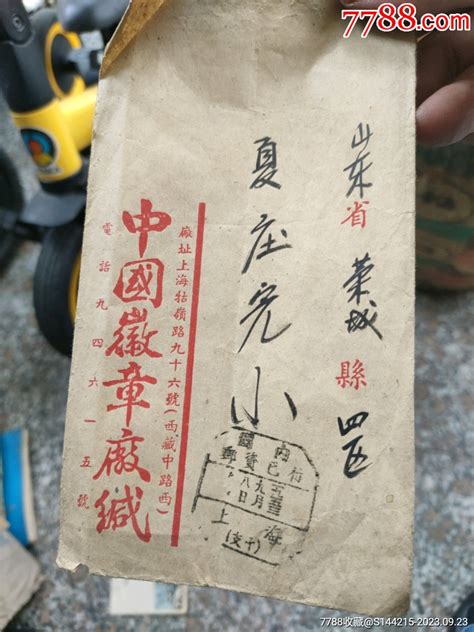 7788.com
山东省 荣城縣 四区
夏庄完小
廠址上海牯嶺路九十六號(西藏中路西)
中國徽章廠緘
電話九四六一五號
國內
郵資已付
九月
八日
上海
(支十)
7788收藏@S144215-2023.09.23